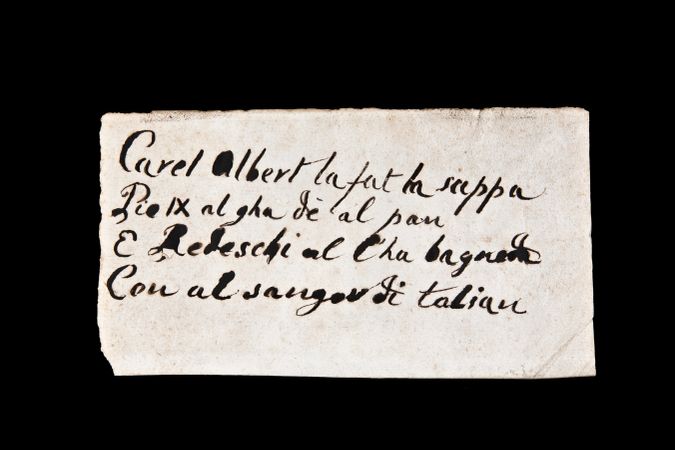 Carel Albert la fat la suppa
Pio IX al gha dè al pan
E Redeschi al l'ha bagneda
Con al sangov di talian